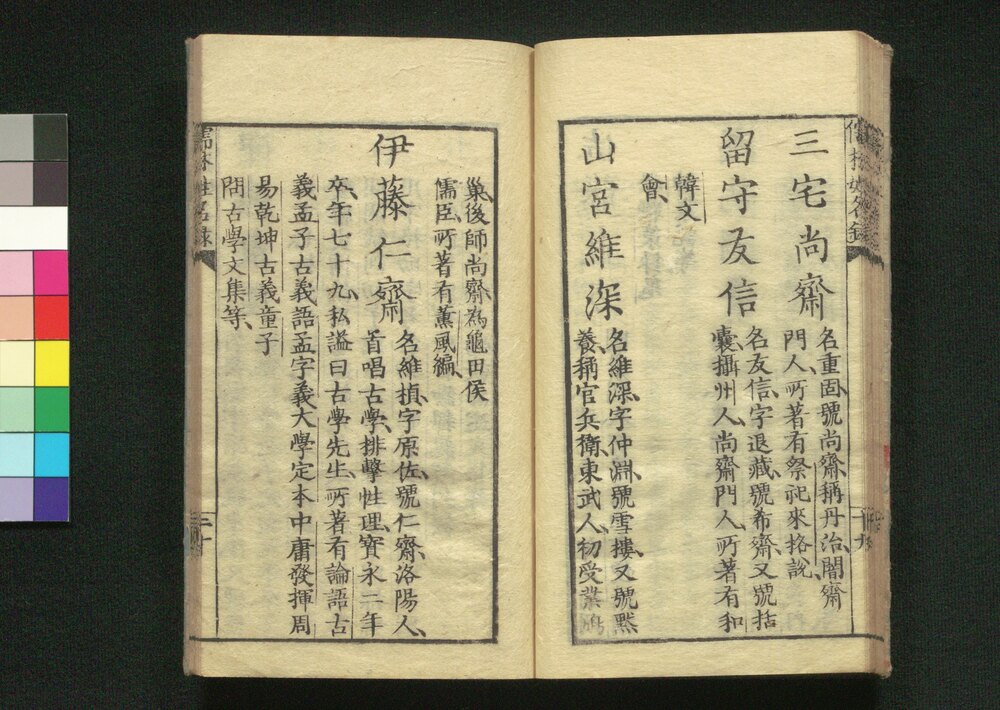 三宅尚齋
名重固號尚齋稱丹治闇齋
門人所著有祭祀來格説
留守友信
名友信字退藏號希齋又號括
囊攝州人尚齋門人所著有和
韓文
會
山宮維深
名維深字仲淵號雪摟又號黙
養稱官兵衛東武人初受業鳩
巢後師尚齋為龜田侯
儒臣所著有薫風編
伊藤仁齋
名維楨字原佐號仁齋洛陽人
首唱古學排擊性理寳永二年
卒年七十九私謚曰古學先生所著有論語古
義孟子古義語孟字義大學定本中庸發揮周
易乾坤古義童子
問古學文集等
儒林姓名録
三十